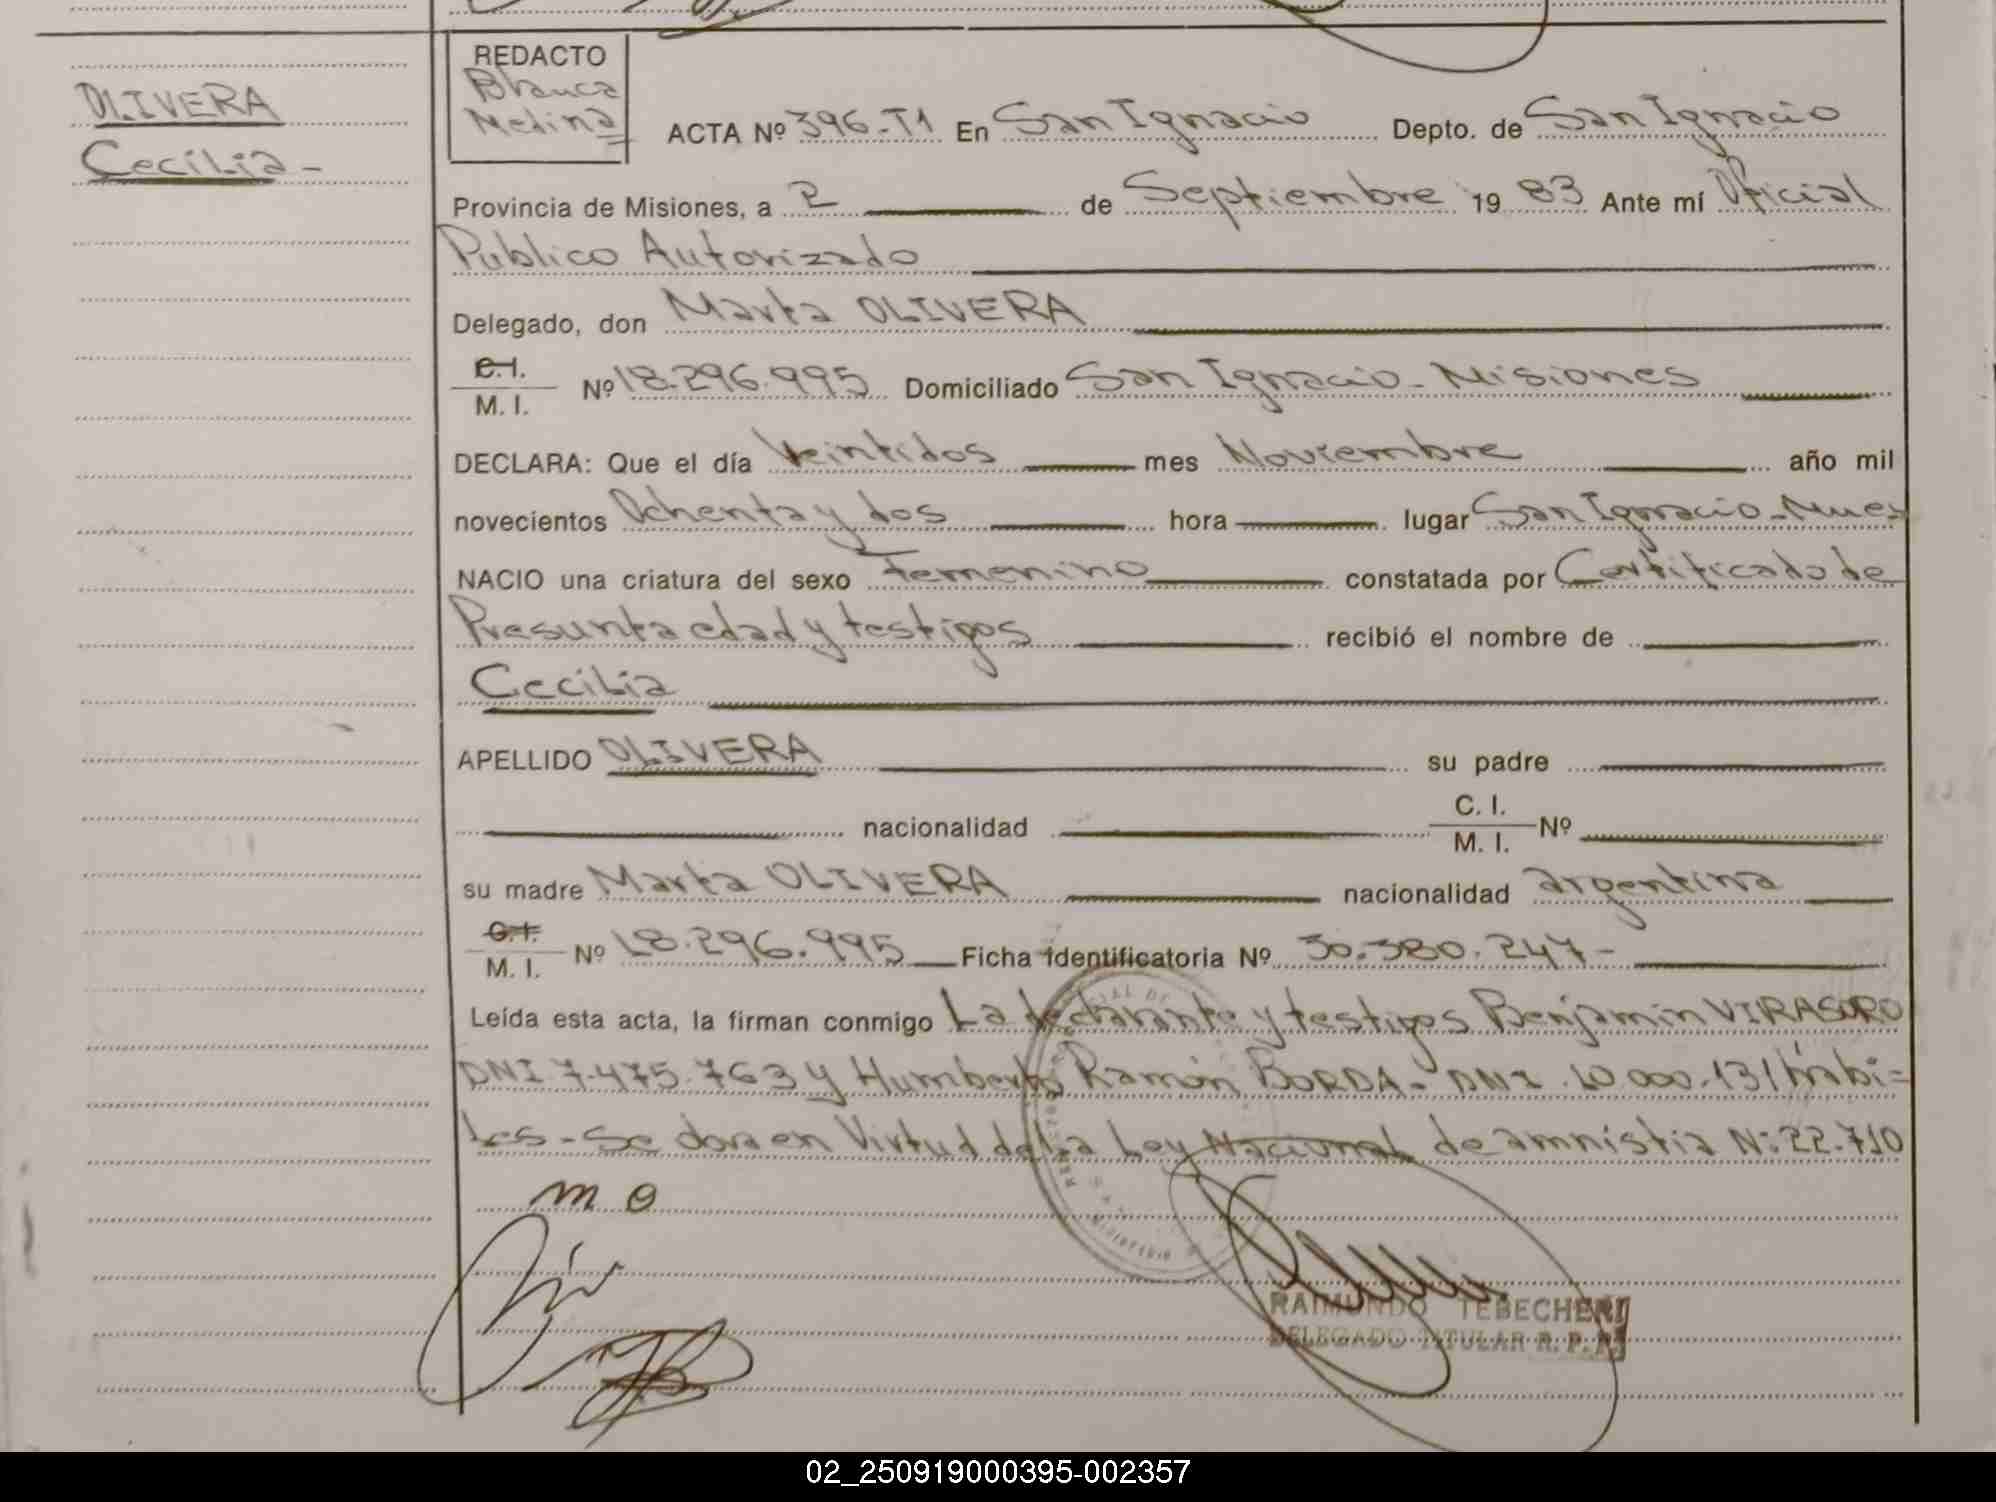 OLIVERA
Cecilia -
REDACTO
Blanca
Medina
ACTA Nº 396-T1 En San Ignacio Depto. de San Ignacio
Provincia de Misiones, a 2 de Septiembre 19 83 Ante mí Oficial
Publico Autorizado
Delegado, don Marta OLIVERA
C. I.
M. I. Nº 18.296.995 Domiciliado San Ignacio - Misiones
DECLARA: Que el día Veintidos mes Noviembre año mil
novecientos Ochenta y dos hora lugar San Ignacio - Mnes
NACIO una criatura del sexo Femenino constatada por Certificado de
Presunta edad y testigos recibió el nombre de
Cecilia
APELLIDO OLIVERA su padre
nacionalidad C. I.
M. I. Nº
su madre Marta OLIVERA nacionalidad argentina
C. I.
M. I. Nº 18.296.995 Ficha Identificatoria Nº 30.380.247-
Leída esta acta, la firman conmigo La declarante y testigos Benjamin VIRASORO
DNI 7.475.763 y Humberto Ramón BORDA - DNI 10.000.131 hábi=
les - Se en Virtud de la Ley Nacional de amnistia Nº 22.710
m o
RAIMUNDO TEBECHERI
DELEGADO TITULAR R. P. P.
02_250919000395-002357